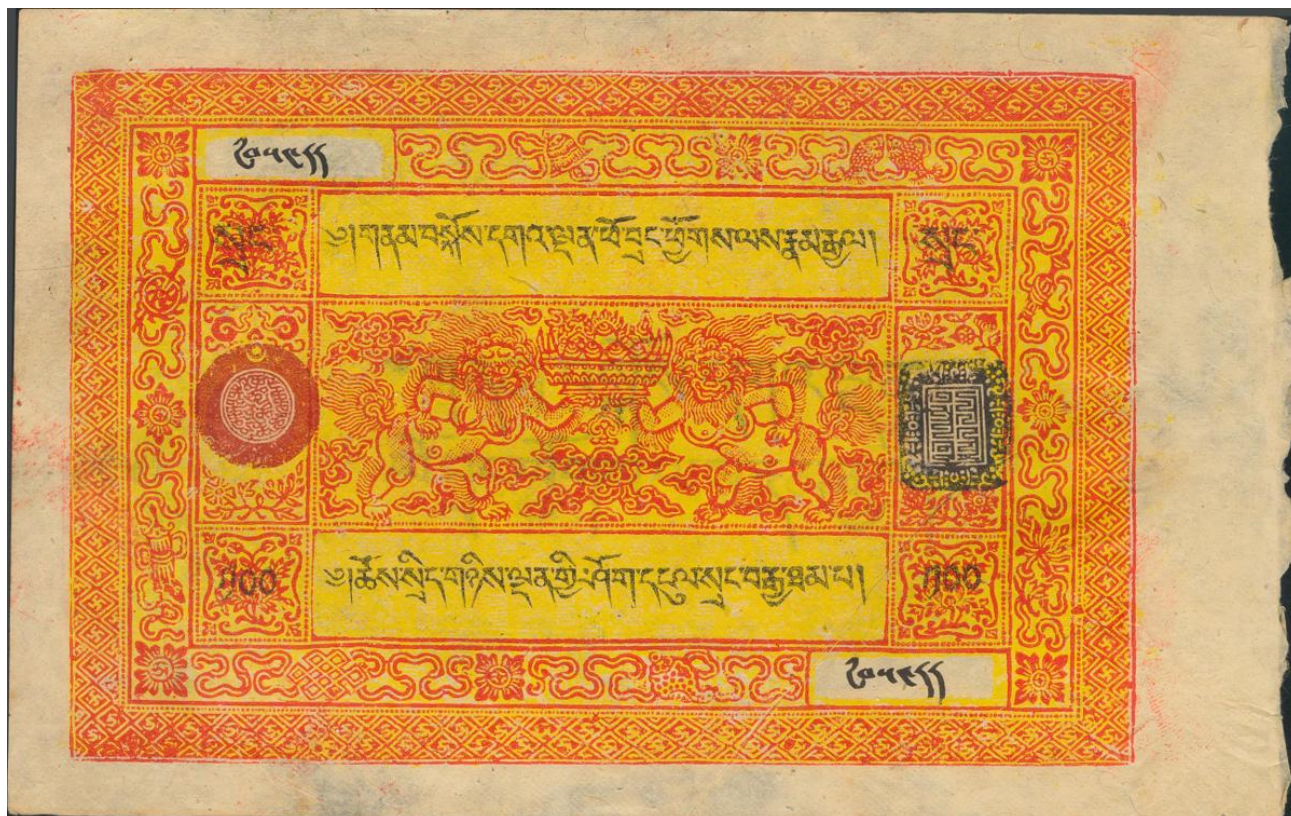 སྲང
༄།གནམ་བསྐོས་དགའ་ལྡན་ཕོ་བྲང་ཕྱོགས་ལས་རྣམ་རྒྱལ།
སྲང
༡༠༠
༄།ཆོས་སྲིད་གཉིས་ལྡན་གྱི་ཤོག་དངུལ་སྲང་བརྒྱ་ཐམ་པ།
༡༠༠